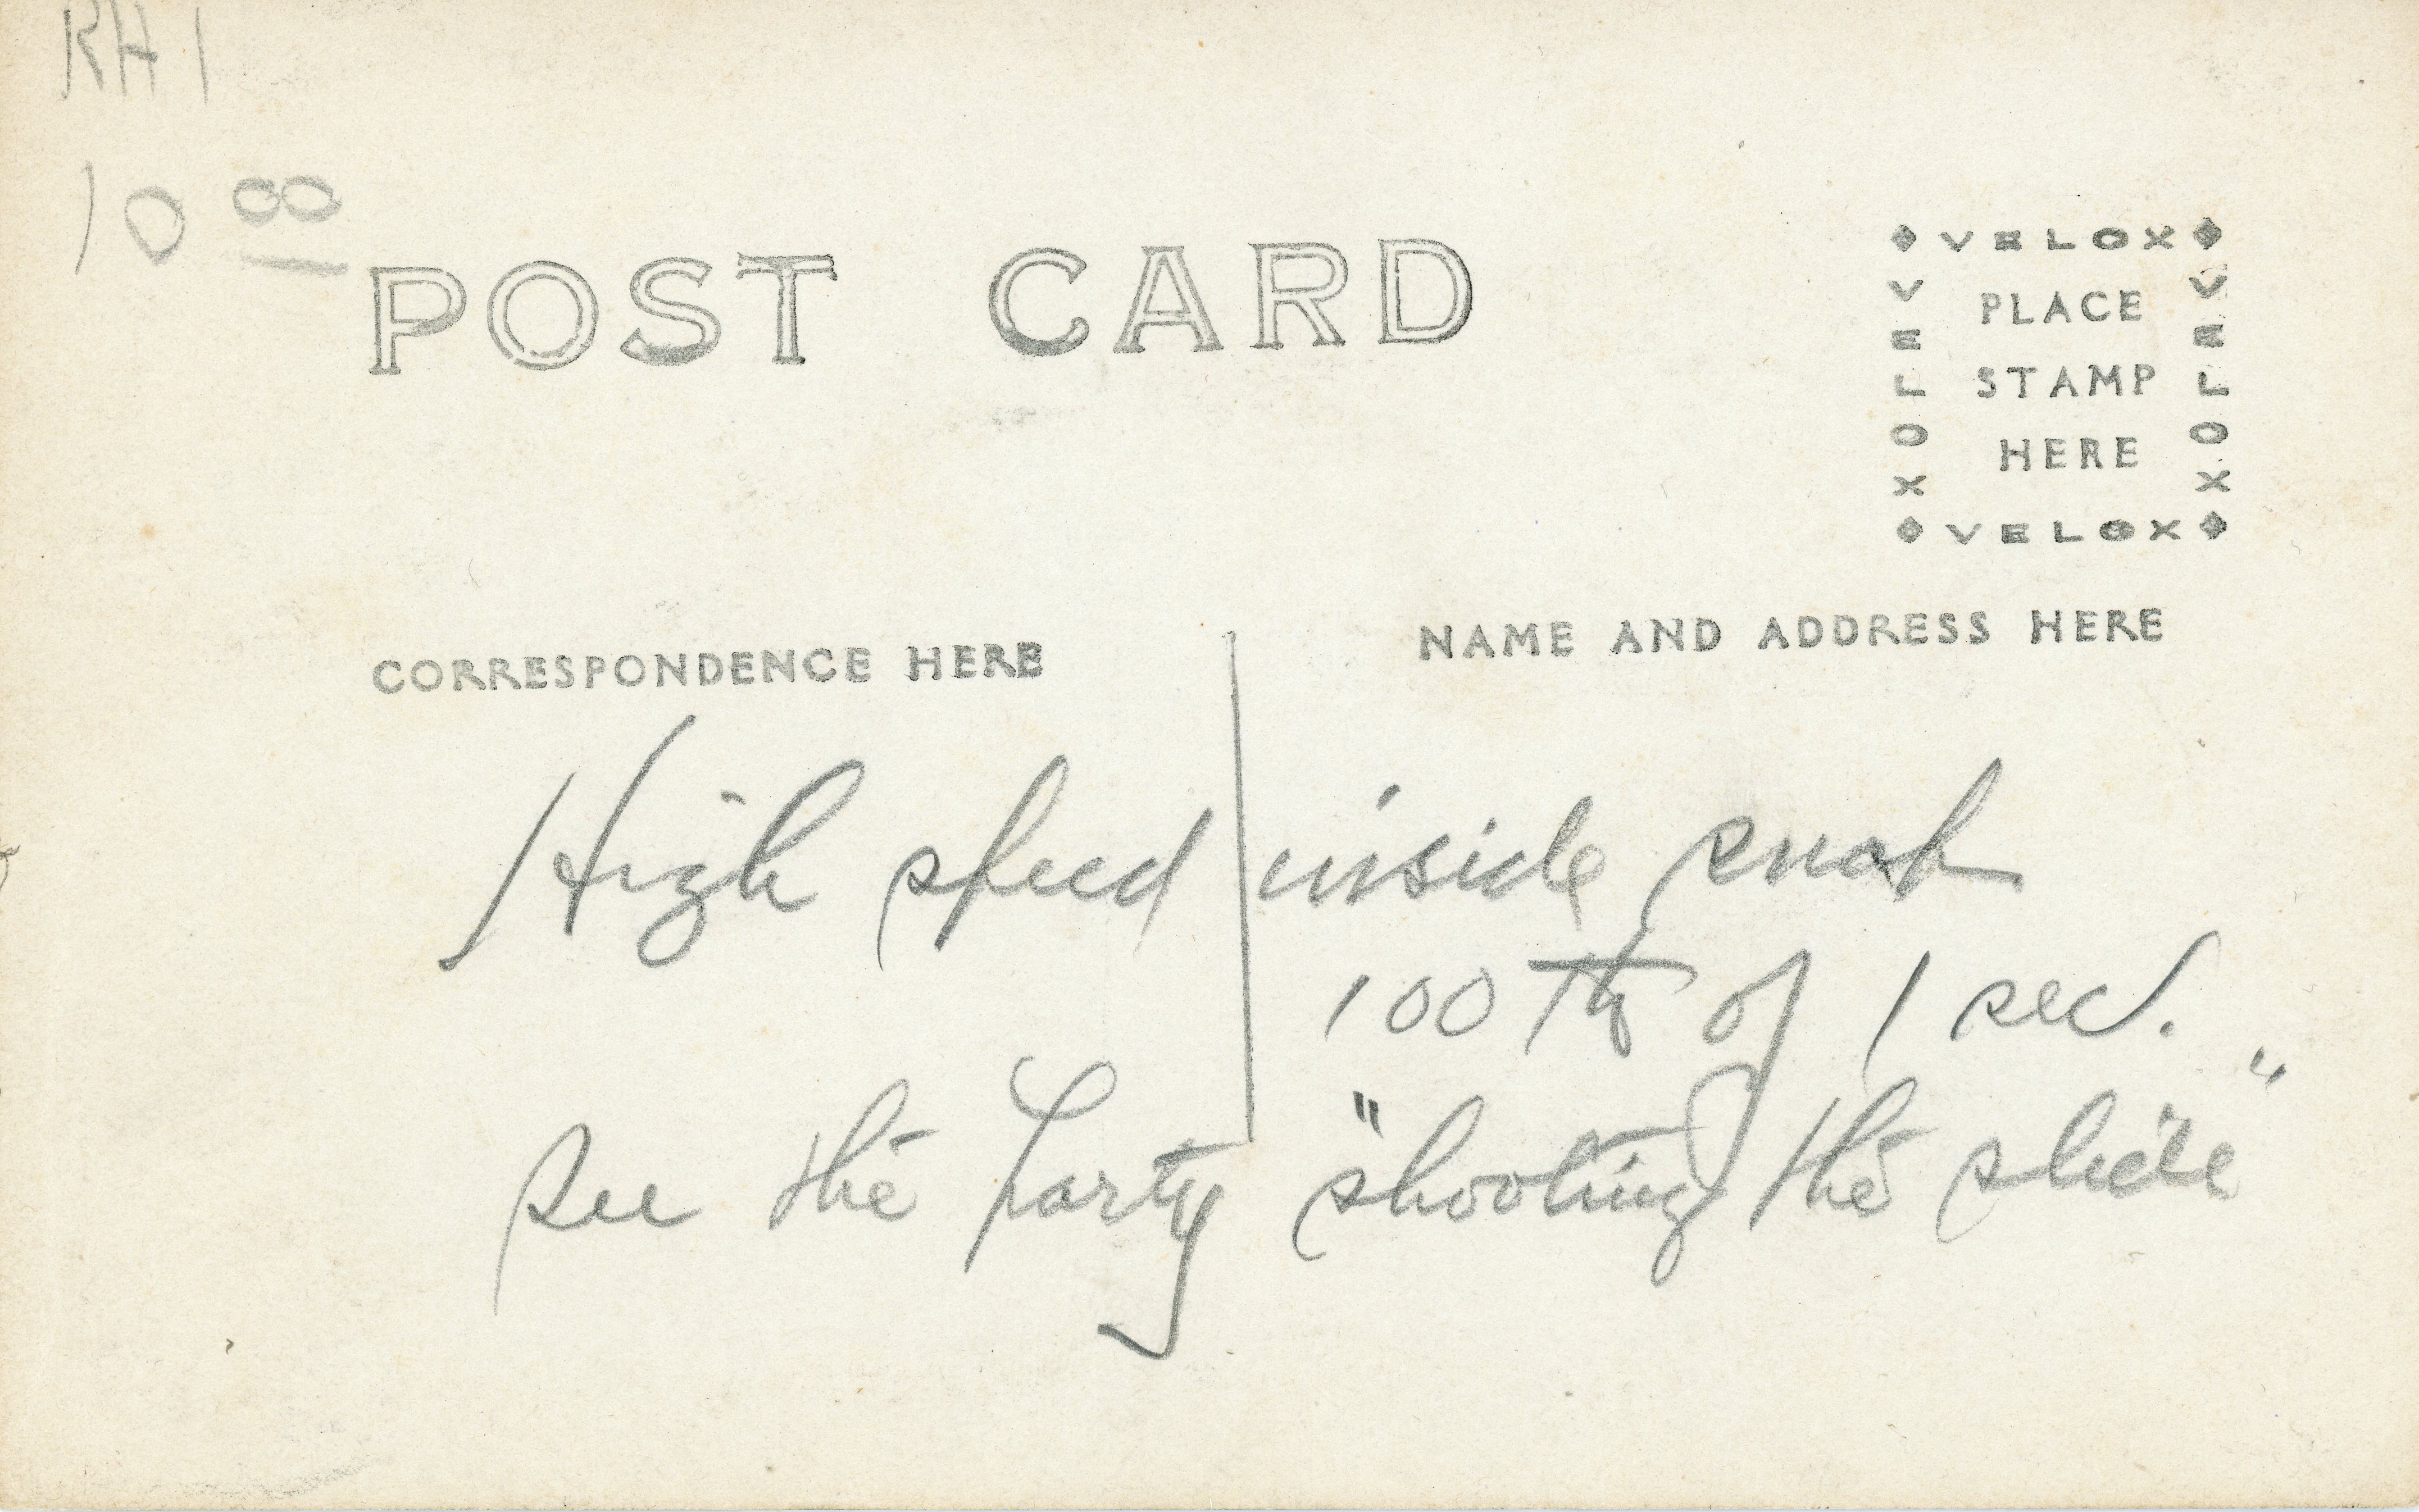 RH 1
10 00
POST CARD
VELOX
VELOX
PLACE
STAMP
HERE
VELOX
VELOX
CORRESPONDENCE HERE
NAME AND ADDRESS HERE
High speed inside snap
100th of 1 sec.
See the Party "shooting the slide"